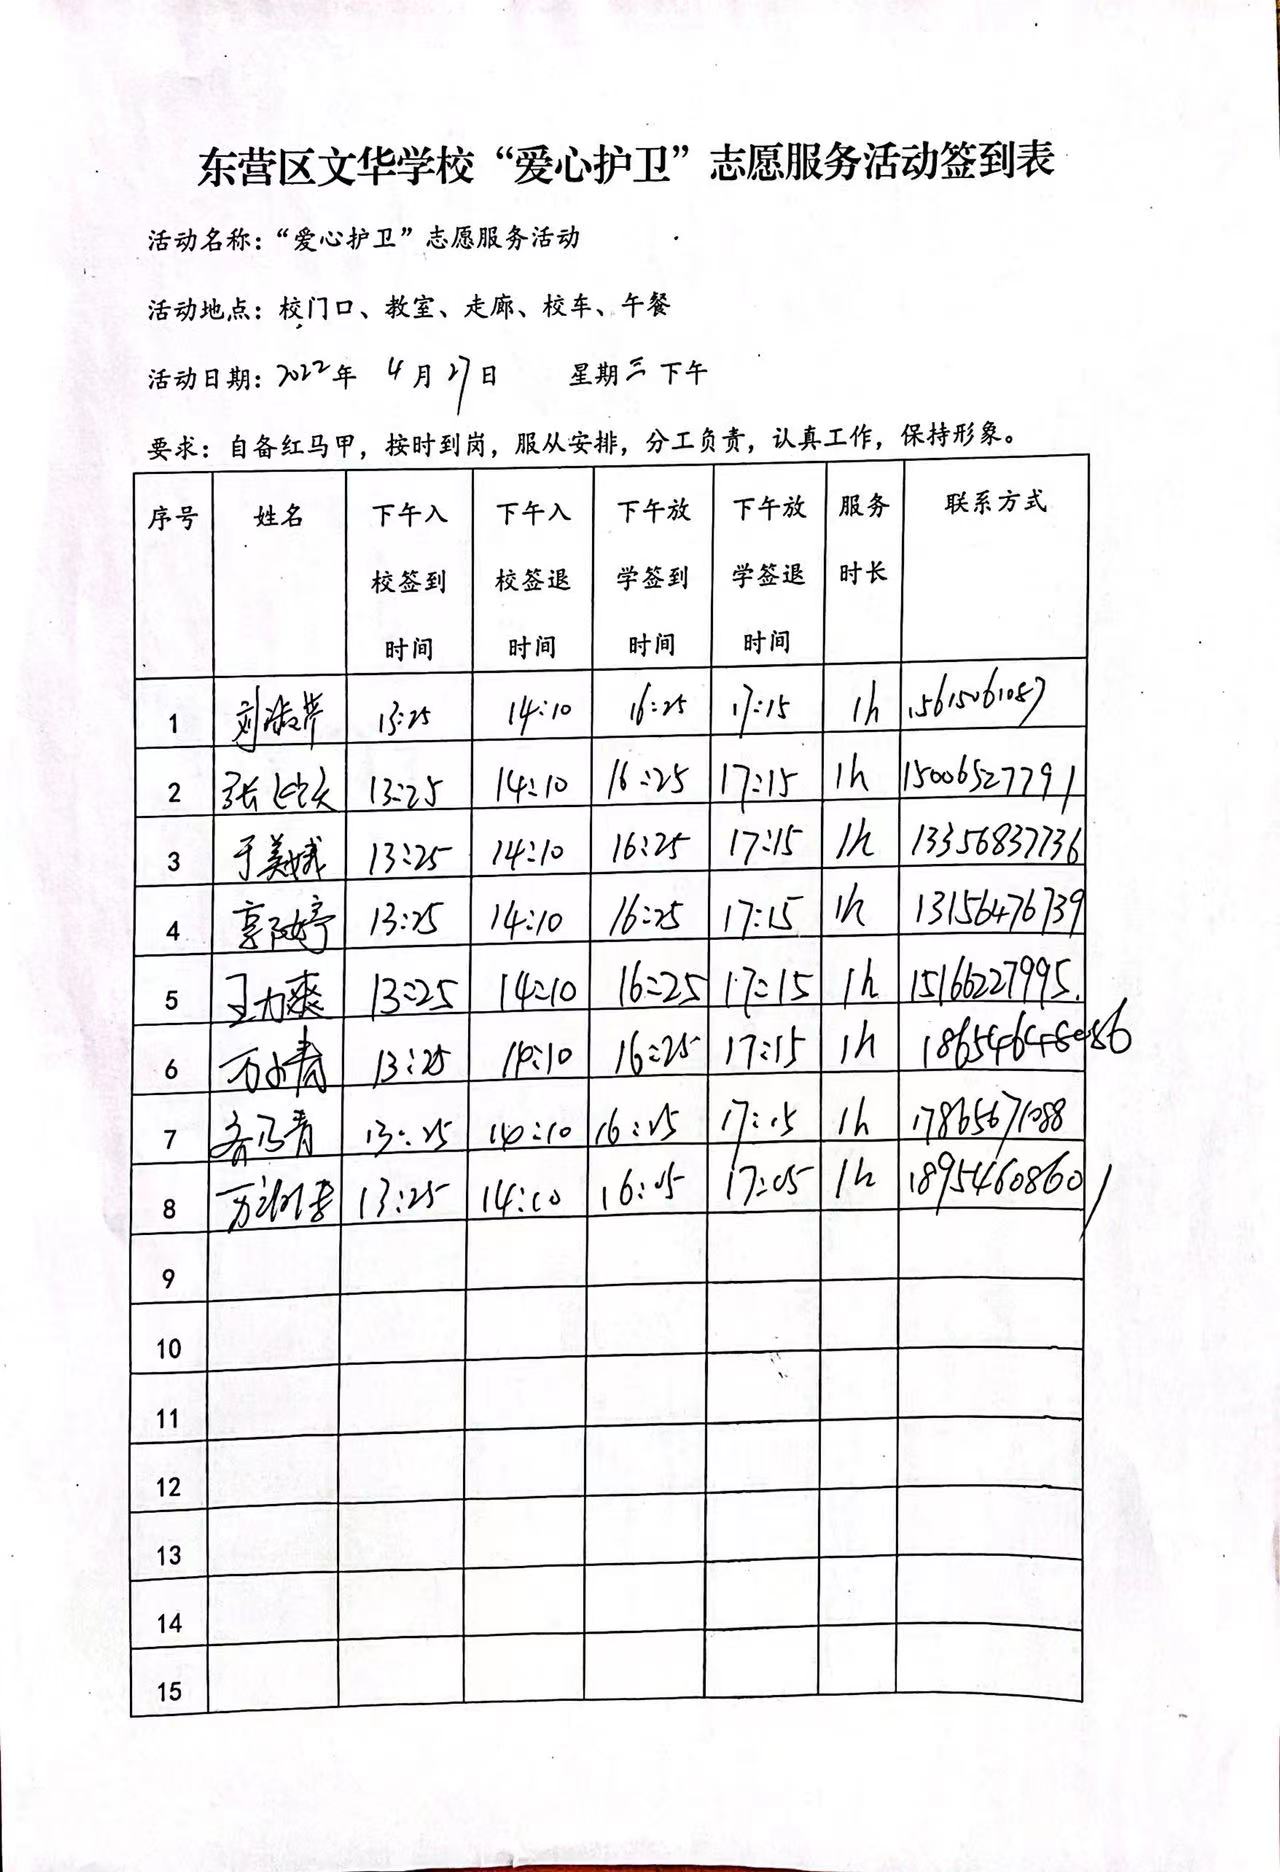 东营区文华学校“爱心护卫”志愿服务活动签到表
活动名称：“爱心护卫”志愿服务活动
活动地点：校门口、教室、走廊、校车、午餐
活动日期：2022年 4月27日 星期三 下午
要求：自备红马甲，按时到岗，服从安排，分工负责，认真工作，保持形象。
序号 姓名 下午入校签到时间 下午入校签退时间 下午放学签到时间 下午放学签退时间 服务时长 联系方式
1 13:25 14:10 16:25 17:15 1h 15615061087
2 13:25 14:10 16:25 17:15 1h 15006527791
3 于美娥 13:25 14:10 16:25 17:15 1h 13356837736
4 13:25 14:10 16:25 17:15 1h 13156476739
5 王力爽 13:25 14:10 16:25 17:15 1h 15166227995
6 13:25 14:10 16:25 17:15 1h
7 13:25 14:10 16:25 17:15 1h 17865671088
8 13:25 14:10 16:05 17:05 1h 18954608601
9
10
11
12
13
14
15